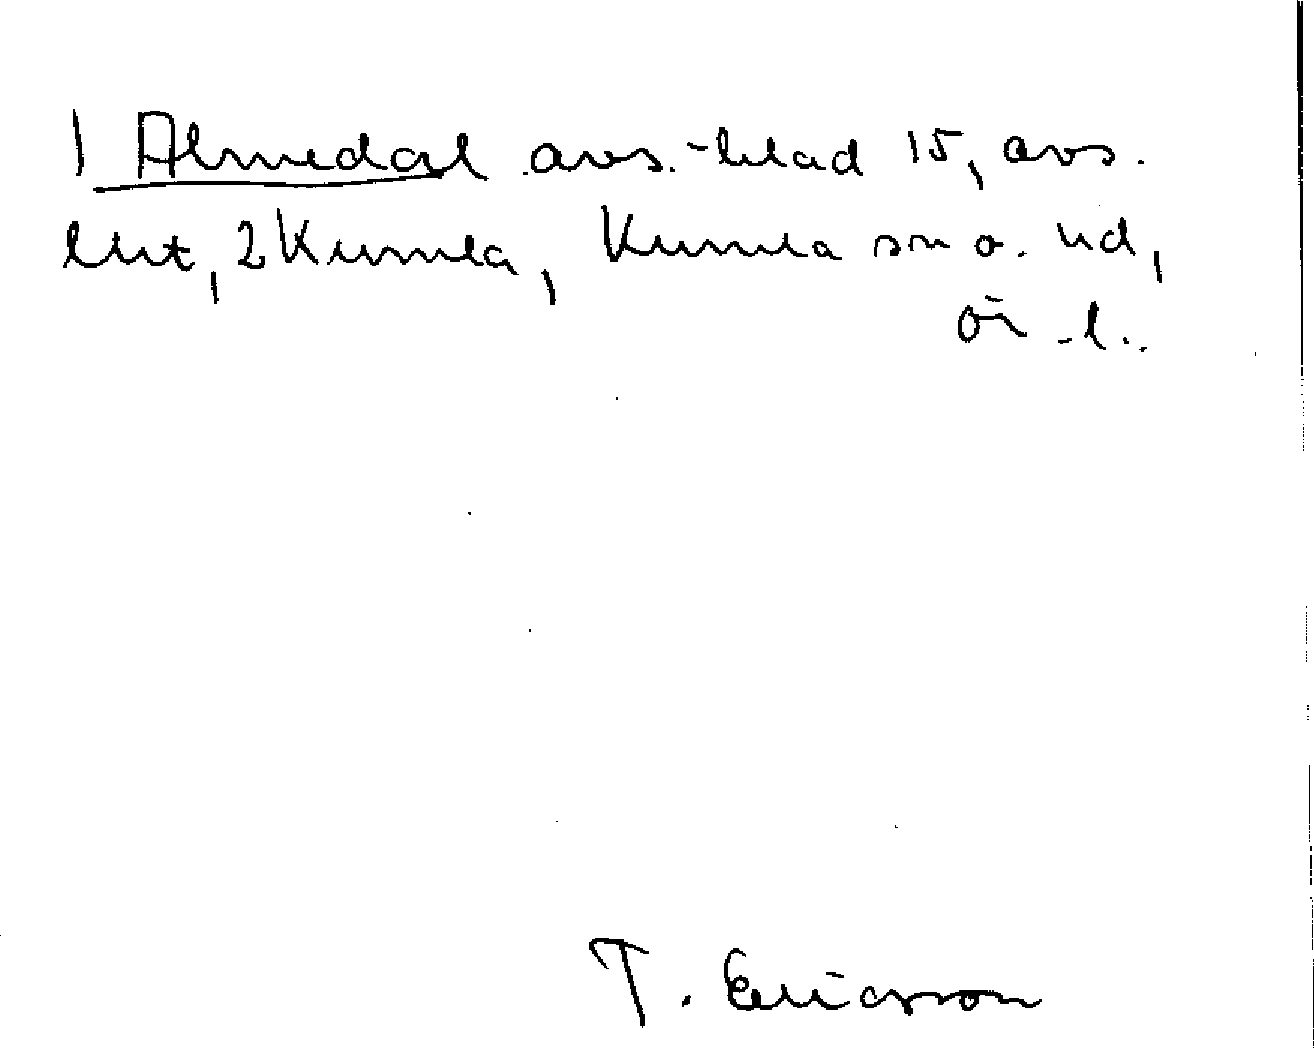 1 Almedal avs.-blad 15, avs.
lht, 2 Kumla, Kumla sn o. hd,
Ör l.
T. Ericsson